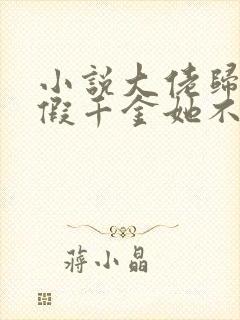 小說大佬歸
假千金她不
蔣小晶